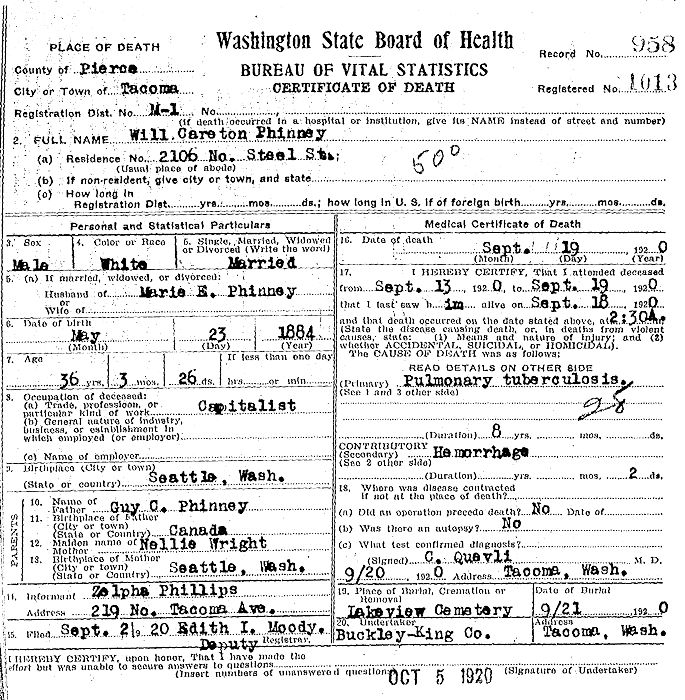 PLACE OF DEATH
Washington State Board of Health
Record No. 958
County of Pierce
BUREAU OF VITAL STATISTICS
City or Town of Tacoma
CERTIFICATE OF DEATH
Registered No. 1013
Registration Dist. No. M-1 No.
(If death occurred in a hospital or institution, give its NAME instead of street and number)
2. FULL NAME Will Careton Phinney
(a) Residence No. 2106 No. Steel St.;
(Usual place of abode)
500
(b) If non-resident, give city or town, and state
(c) How long in
Registration Dist. yrs. mos. ds.; how long in U. S. if of foreign birth yrs. mos. ds.
Personal and Statistical Particulars
3. Sox
4. Color or Race
5. Single, Married, Widowed
or Divorced (Write the word)
Male White Married
5. (a) If married, widowed, or divorced:
Husband of Marie E. Phinney
or
Wife of
6. Date of birth
May 23 1884
(Month) (Day) (Year)
7. Age
If less than one day
36 yrs. 3 mos. 26 ds. hrs. or min.
8. Occupation of deceased:
(a) Trade, profession, or
particular kind of work Capitalist
(b) General nature of industry,
business, or establishment in
which employed (or employer)
(c) Name of employer
9. Birthplace (City or town)
(State or country) Seattle, Wash.
PARENTS
10. Name of
Father Guy C. Phinney
11. Birthplace of Father
(City or town)
(State or Country) Canada
12. Maiden name of
Mother Nellie Wright
13. Birthplace of Mother
(City or town)
(State or Country) Seattle, Wash.
14. Informant Zelpha Phillips
Address 219 No. Tacoma Ave.
15. Filed Sept. 21 1920 Edith I. Moody.
Deputy Registrar.
Medical Certificate of Death
16. Date of death
Sept. 19 1920
(Month) (Day) (Year)
17. I HEREBY CERTIFY, That I attended deceased
from Sept. 13 1920, to Sept. 19, 1920
that I last saw him alive on Sept. 18 1920
and that death occurred on the date stated above, at 2:30A.
(State the disease causing death, or, in deaths from violent
causes, state: (1) Means and nature of injury; and (2)
whether ACCIDENTAL, SUICIDAL, or HOMICIDAL).
The CAUSE OF DEATH was as follows:
READ DETAILS ON OTHER SIDE
(Primary) Pulmonary tuberculosis.
(See 1 and 3 other side)
28
(Duration) 8 yrs. mos. ds.
CONTRIBUTORY
(Secondary) Hemorrhage
(See 2 other side)
(Duration) yrs. mos. 2 ds.
18. Where was disease contracted
if not at the place of death?
(a) Did an operation precede death? No Date of
(b) Was there an autopsy? No
(c) What test confirmed diagnosis?
(Signed) C. Quevli M. D.
9/20 1920 Address Tacoma, Wash.
19. Place of Burial, Cremation or
Removal
Date of Burial
Lakeview Cemetery 9/21 1920
20. Undertaker
Address
Buckley-King Co. Tacoma, Wash.
I HEREBY CERTIFY, upon honor, That I have made the
effort but was unable to secure answers to questions
(Insert numbers of unanswered questions)
OCT 5 1920
(Signature of Undertaker)